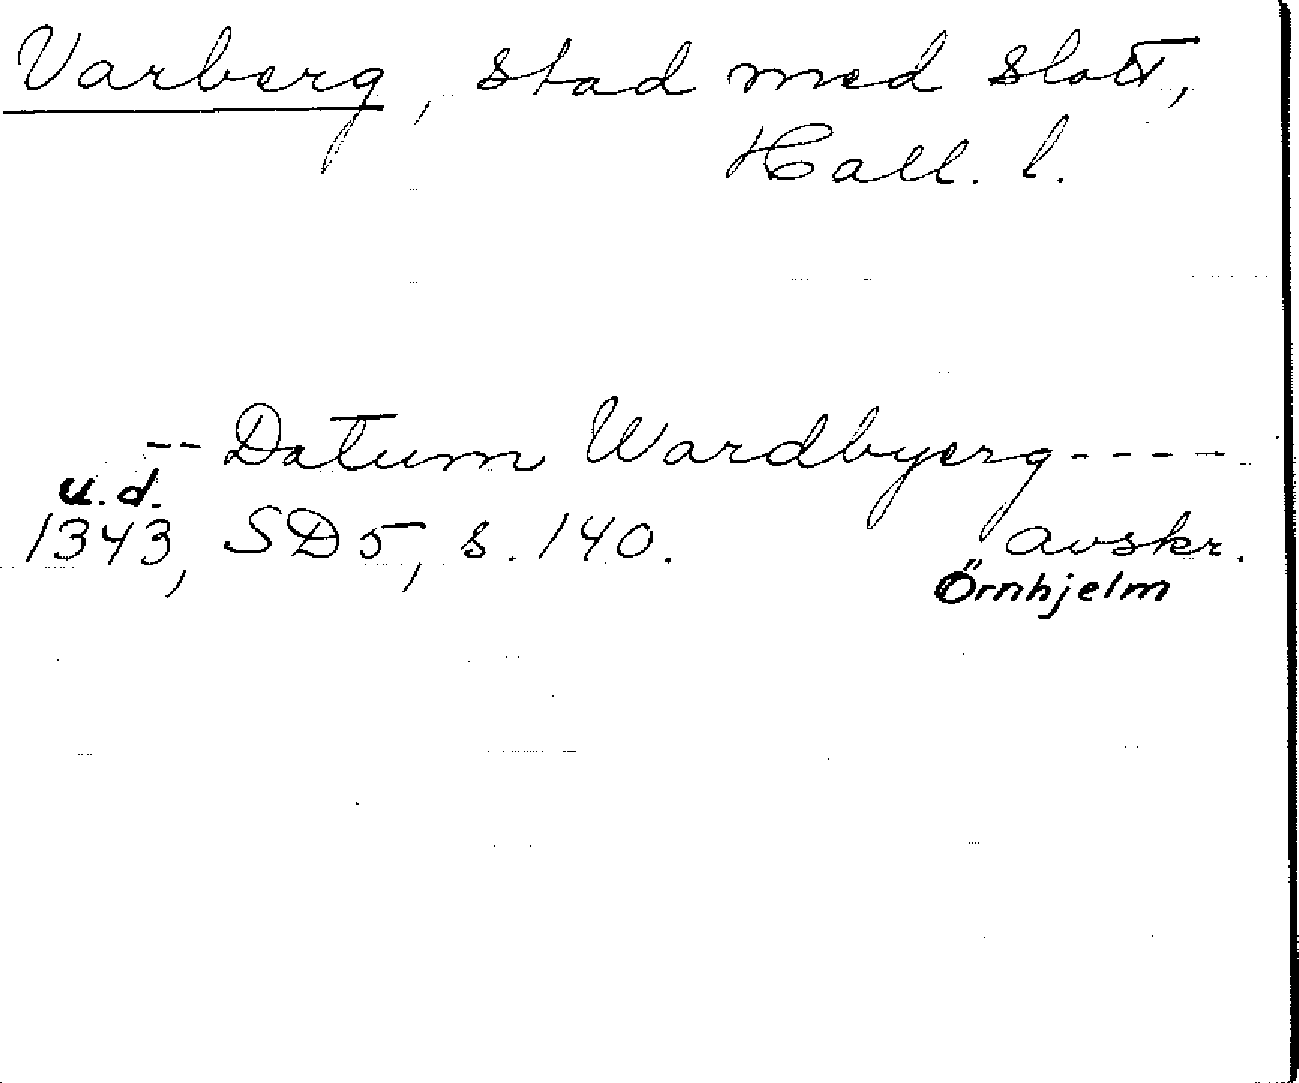 Varberg, stad med slott,
Hall. l.
-- Datum Wardbyerg -----
u.d.
1343, SD 5, s. 140. avskr.
Örnhjelm